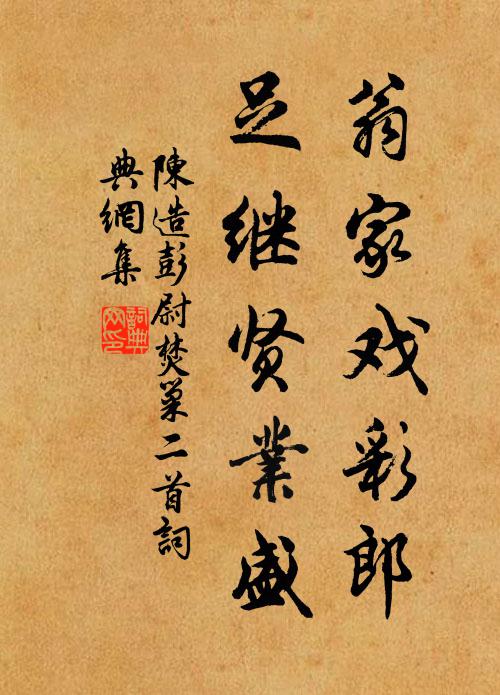 翁家戏彩郎
足继贤業盛
陳造彭尉焚巢二首詞
典網集
詞典网印